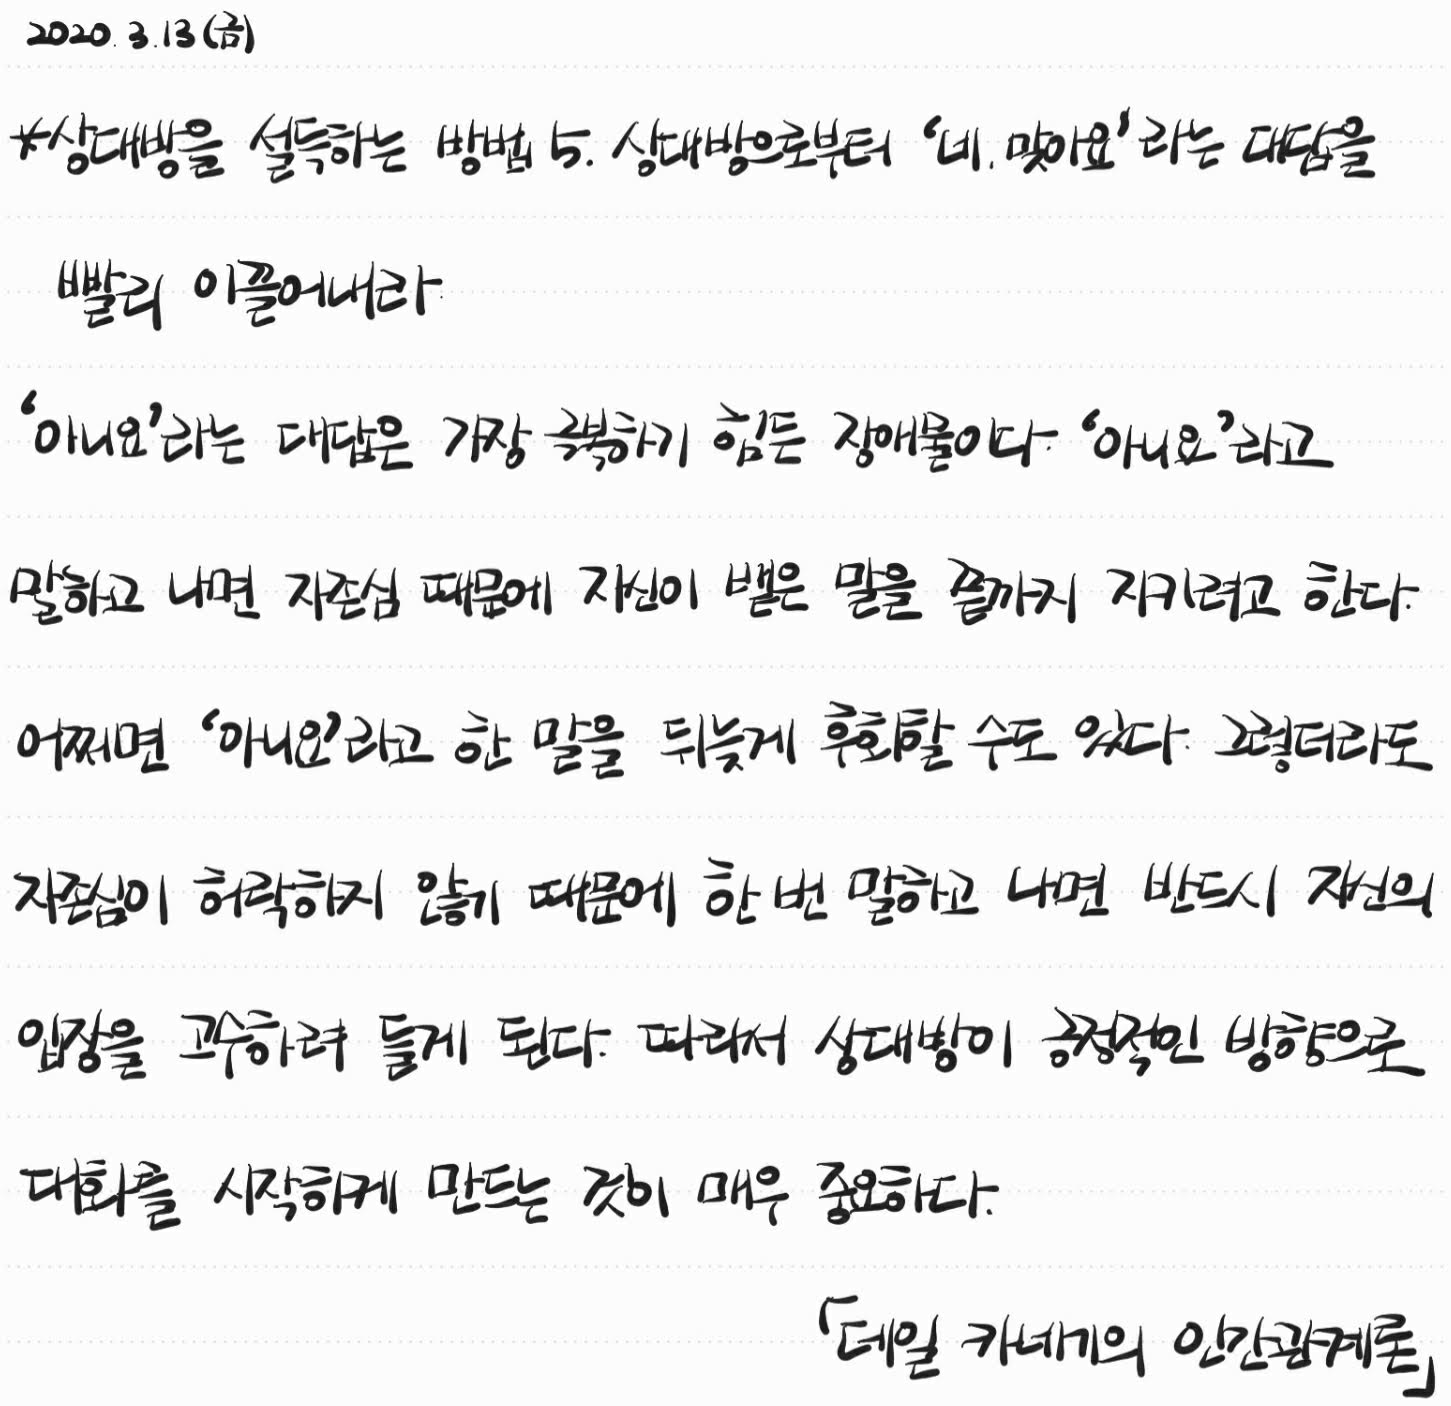 2020. 3. 13 (금)
*상대방을 설득하는 방법 5. 상대방으로부터 '네, 맞아요'라는 대답을
빨리 이끌어내라.
'아니요'라는 대답은 가장 극복하기 힘든 장애물이다. '아니요'라고
말하고 나면 자존심 때문에 자신이 뱉은 말을 끝까지 지키려고 한다.
어쩌면 '아니요'라고 한 말을 뒤늦게 후회할 수도 있다. 그럴더라도
자존심이 허락하지 않기 때문에 한 번 말하고 나면 반드시 자신의
입장을 고수하려 들게 된다. 따라서 상대방이 긍정적인 방향으로
대화를 시작하게 만드는 것이 매우 중요하다.
「데일 카네기의 인간관계론」